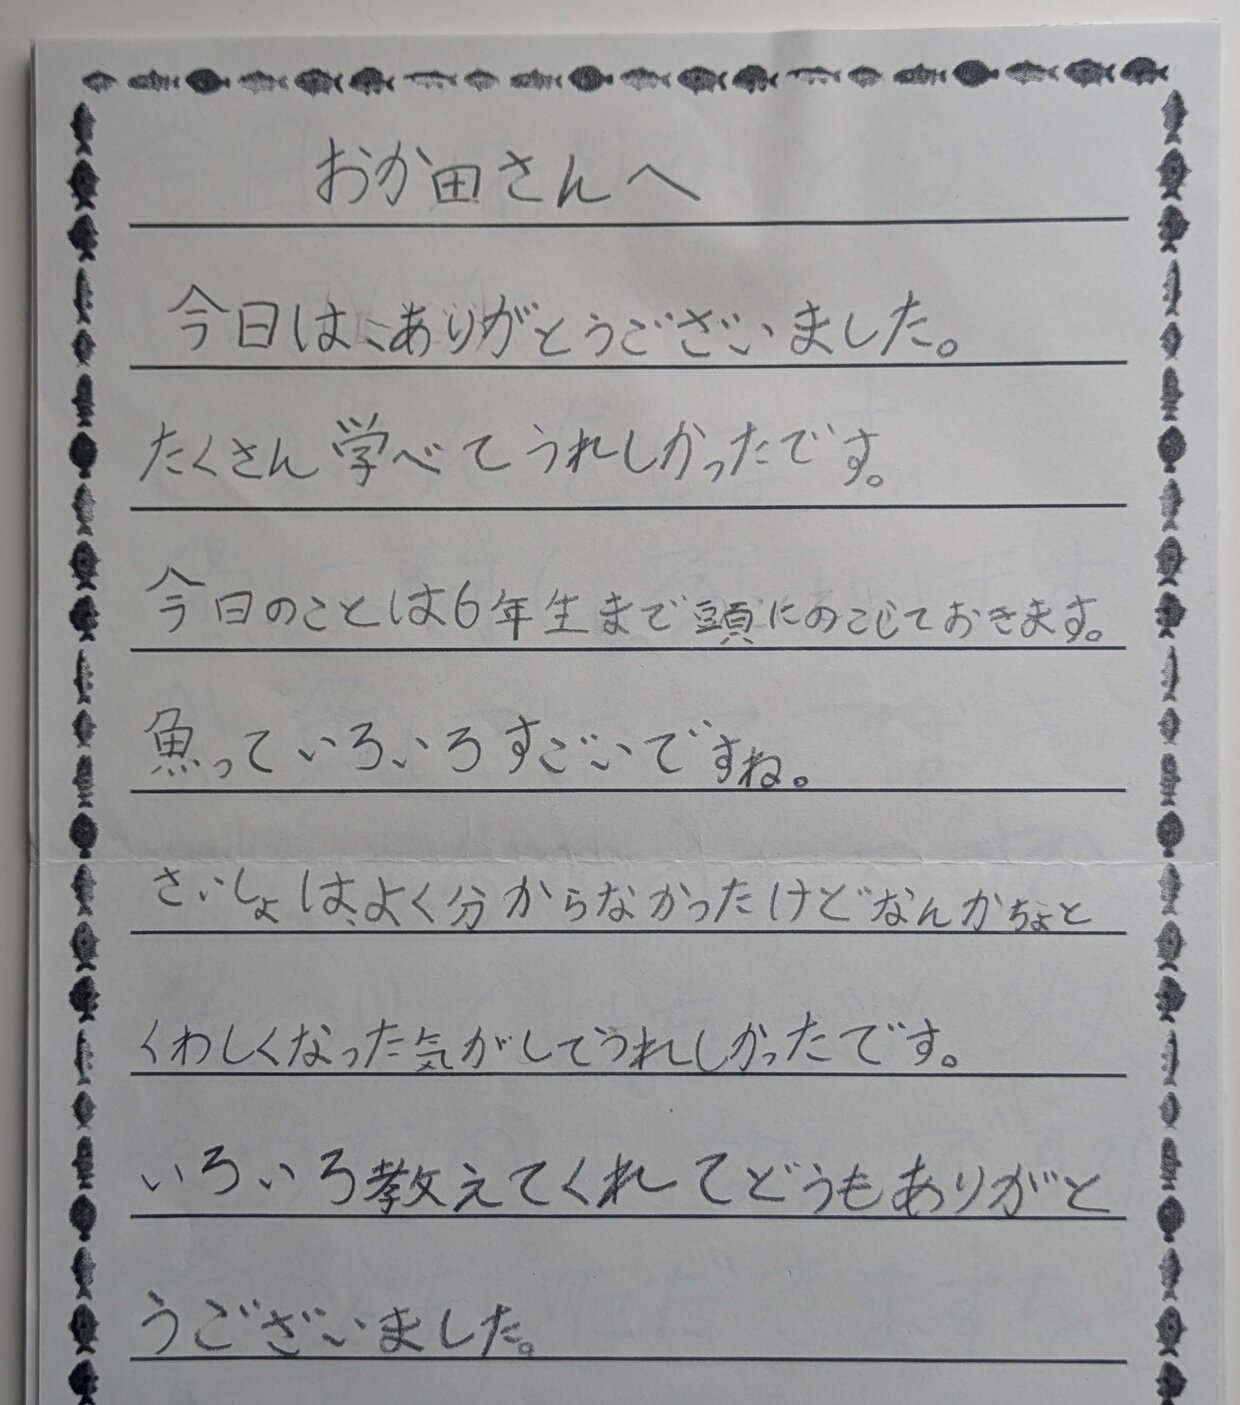 おか田さんへ
今日は、ありがとうございました。
たくさん学べてうれしかったです。
今日のことは6年生まで頭にのこしておきます。
魚っていろいろすごいですね。
さいしょは、よく分からなかったけどなんかちょと
くわしくなった気がしてうれしかったです。
いろいろ教えてくれてどうもありがと
うございました。